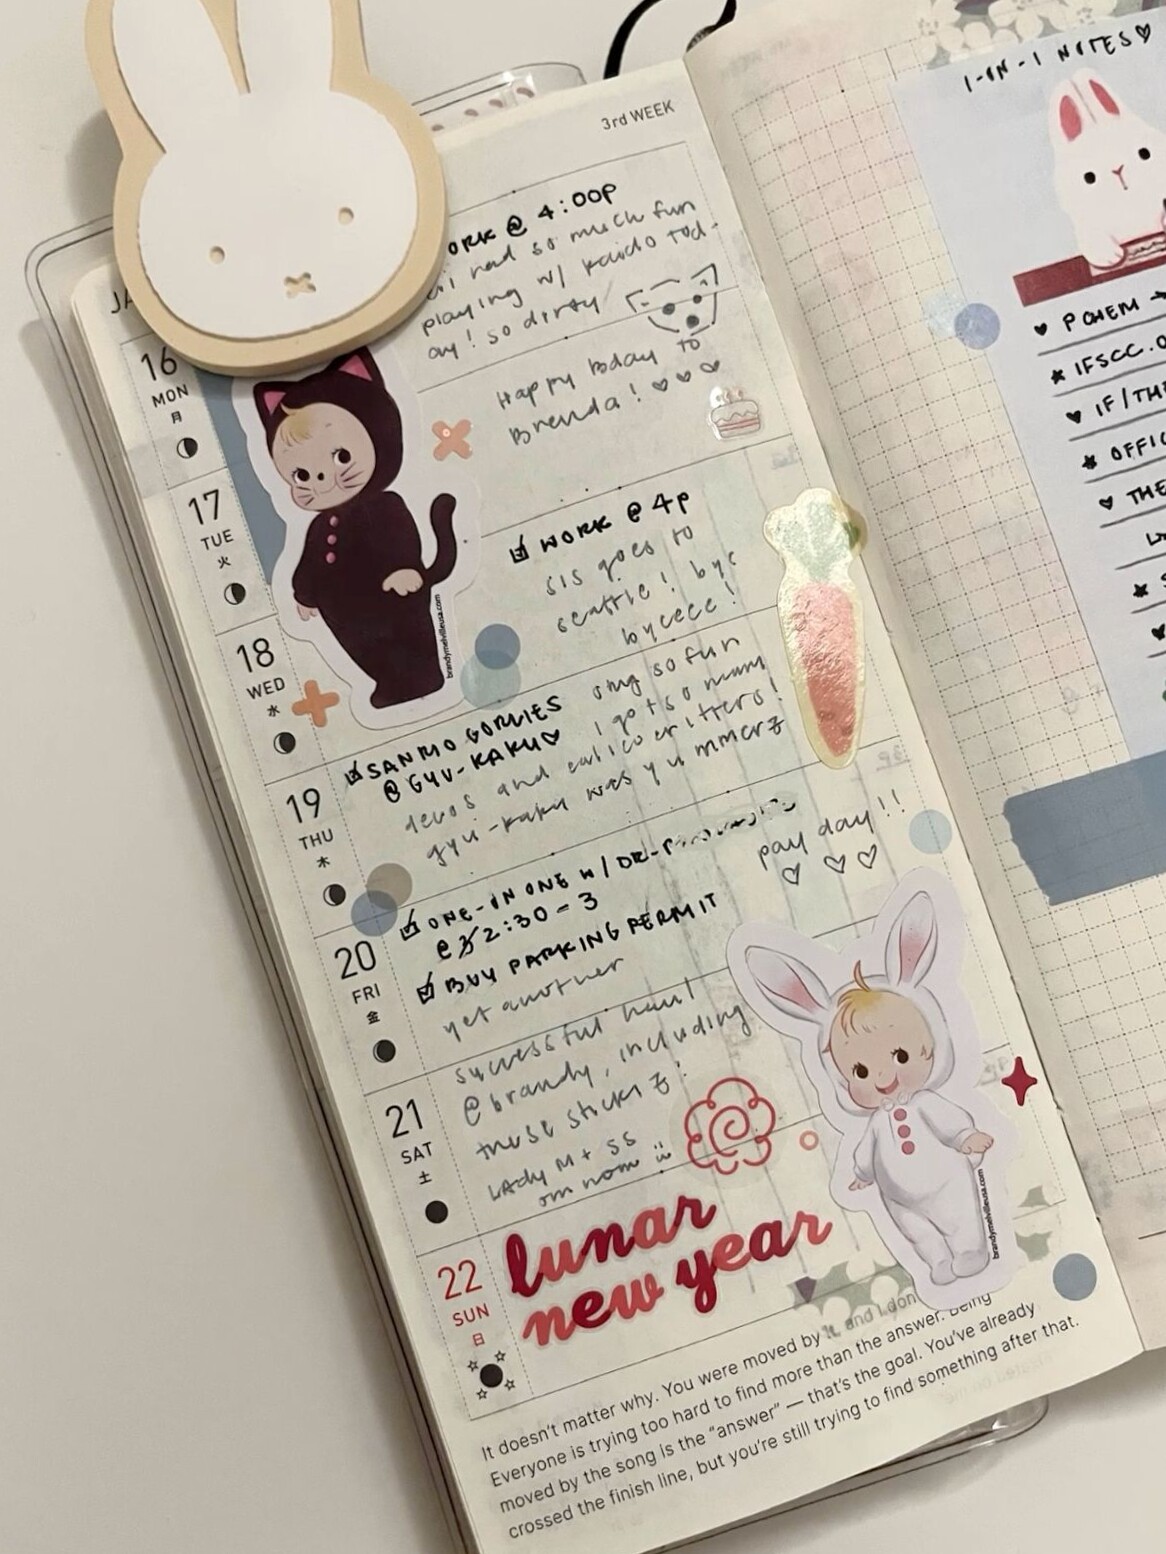 3rd WEEK
JA
16
MON
月
ORK @ 4:00P
had so much fun
playing w/ Kaido tod-
ay! so dirty
17
TUE
火
Happy bday to
Brenda! ♡♡♡
18
WED
水
WORK @ 4p
sis goes to
seattle! bye
byeeee!
19
THU
木
SANRIO GORLIES
@ GYU-KAKU♡
omg so fun
i got so many
decos and calico critters!
gyu-kaku was yummerz
20
FRI
金
ONE-ON ONE W/ DR.
@ 2:30-3
BUY PARKING PERMIT
pay day!!
♡ ♡ ♡
21
SAT
土
yet another
successful haul
@ brandy, including
these stickerz!
LAdy M + SS
om nom
22
SUN
日
lunar
new year
brandymelvilleusa.com
brandymelvilleusa.com
It doesn't matter why. You were moved by it, and I don
Everyone is trying too hard to find more than the answer. Being
moved by the song is the “answer” — that's the goal. You've already
crossed the finish line, but you're still trying to find something after that.
1-ON-1 NOTES♡
PCHEM →
IFSCC.O
IF/THE
OFFIC
THE